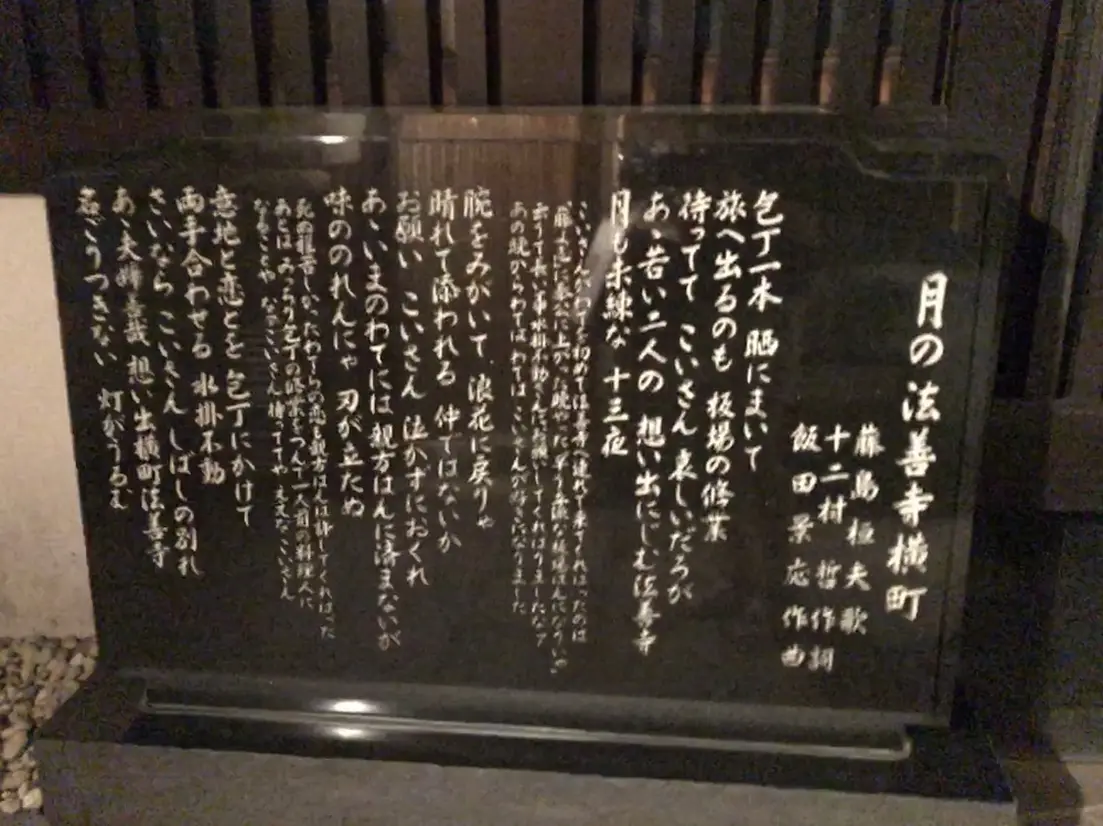 月の法善寺横町
藤島桓夫歌
十二村 哲作詞
飯田景応作曲
包丁一本 晒にまいて
旅へ出るのも 板場の修業
待ってて こいさん 哀しいだろが
あゝ若い二人の 想い出にじむ法善寺
月も未練な 十三夜
こいさんがわてを初めて法善寺へ連れて来てくれはったのは
「藤よ志」に奉公に上がった晩やった 早う立派な板場はんになりいや
云うて長い事水掛不動さんにお願いしてくれはりましたなァ
あの晩からわては わては こいさんが好きになりました
腕をみがいて 浪花に戻りゃ
晴れて添われる 仲ではないか
お願い こいさん 泣かずにおくれ
あゝいまのわてには親方はんに済まないが
味ののれんにゃ 刃が立たぬ
死ぬ程苦しかったわてらの恋も親方はんは許してくれはった
あとはみっちり包丁の修業をつんで一人前の料理人に
なることや なあこいさん待っててや ええなこいさん
意地と恋とを 包丁にかけて
両手合わせる 水掛不動
さいなら こいさん しばしの別れ
あゝ夫婦善哉 想い出横町法善寺
名ごりつきない 灯がうるむ